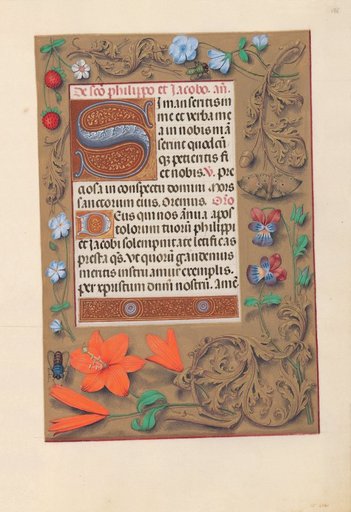 De scõ philippo et Jacobo. añ.
Si manseritis in
me et verba me
a in nobis mã
serint quodcũ
q3 petieritis fi
et nobis. V. Pre
ciosa in conspectu domini. Mors
sanctorum eius. Oremus. Orõ
Deus qui nos ãnua apos
tolorum tuorũ philippi
et Jacobi solempnitate letificas
presta q̃s. Ut quorũ gaudemus
meritis instruamur exemplis.
per xpristum dnũ nostrũ. Amẽ